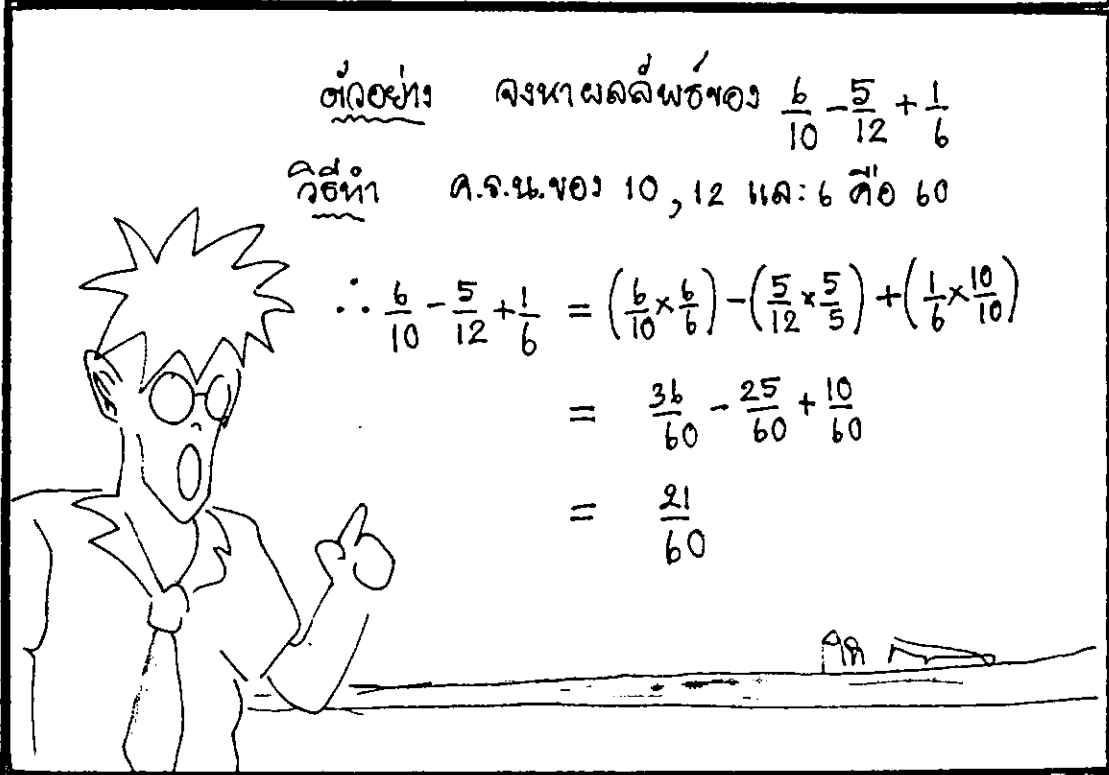 ตัวอย่าง จงหาผลลัพธ์ของ 6/10 - 5/12 + 1/6
วิธีทำ ค.ร.น.ของ 10, 12 และ 6 คือ 60
∴ 6/10 - 5/12 + 1/6 = (6/10 × 6/6) - (5/12 × 5/5) + (1/6 × 10/10)
= 36/60 - 25/60 + 10/60
= 21/60